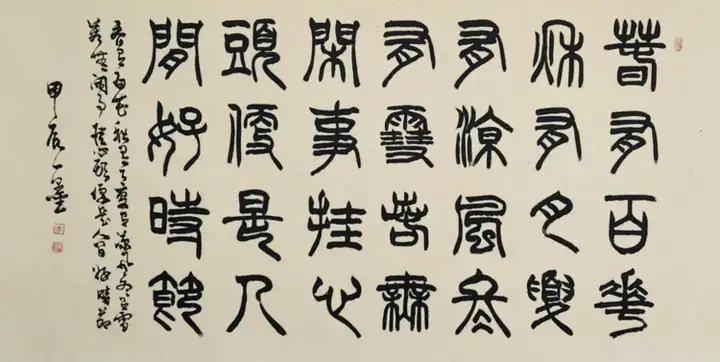 春有百花
秋有月夏
有涼風冬
有雪若無
閑事挂心
頭便是人
間好時節
春有百花秋有月夏有凉风冬有雪
若無闲事挂心頭便是人间好時節
甲辰一墨